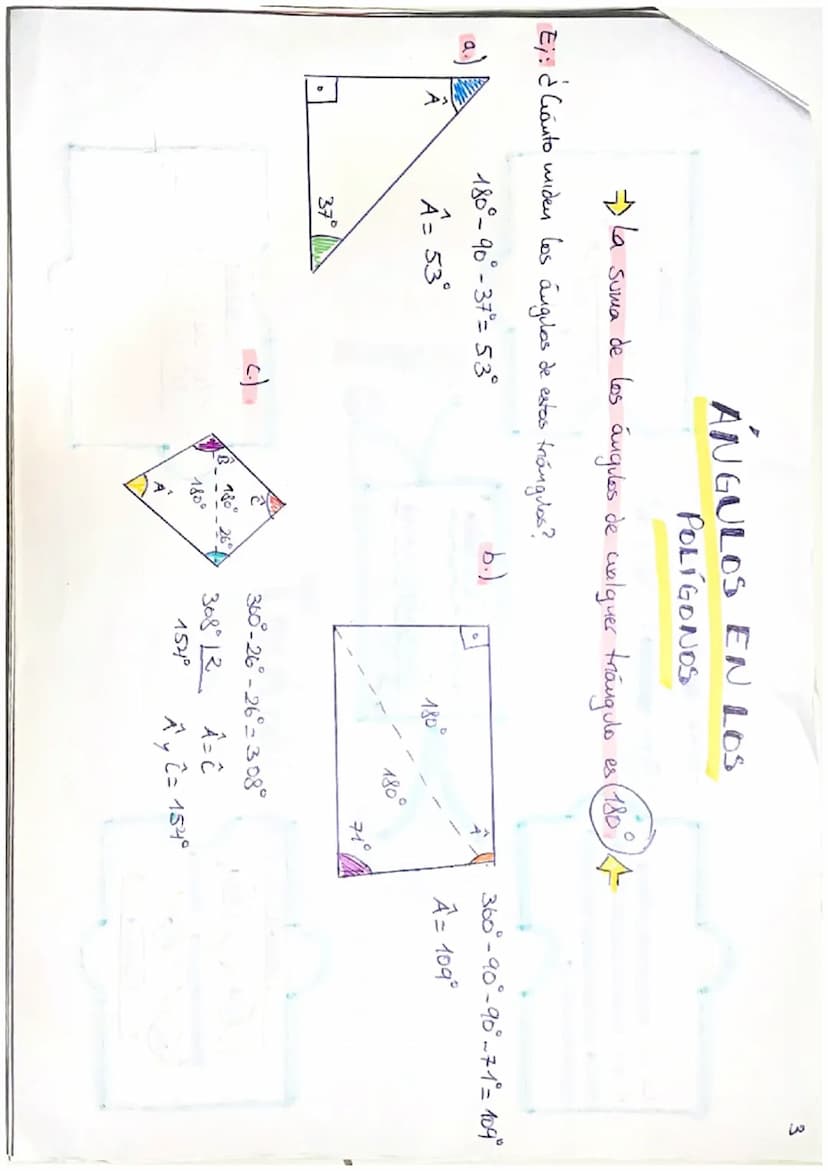 3
ÁNGULOS EN LOS
POLÍGONOS
→ La suma de los ángulos de cualquier triángulo es 180° ←
Ej: ¿Cuánto miden los ángulos de estos triángulos?
a.)
Â
37°
180° - 90° - 37° = 53°
Â = 53°
b.)
180°
180°
Â
71°
360° - 90° - 90° - 71° = 109°
Â = 109°
c.)
B̂
Ĉ
180°
26°
180°
Â
360° - 26° - 26° = 308°
308° |2
154°
Â = Ĉ
Â y Ĉ = 154°